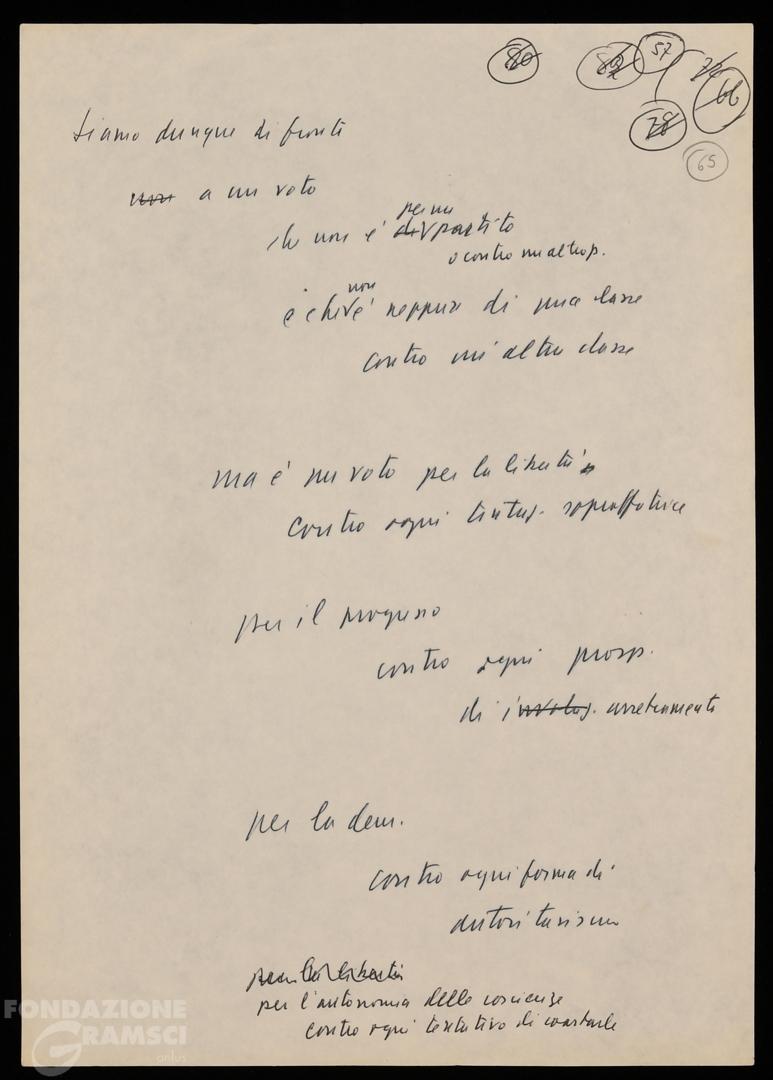 80 82 57 72 66
78
65
Siamo dunque di fronte
non a un voto
che non è di per un partito
o contro un altro p.
e che non è neppure di una classe
contro un'altra classe
ma è un voto per la libertà
contro ogni tentaz. sopraffatrice
per il progresso
contro ogni prosp.
di involuz. arretramento
per la dem.
contro ogni forma di
autoritarismo
per la libertà
per l'autonomia delle coscienze
contro ogni tentativo di coartarle
FONDAZIONE
GRAMSCI
onlus